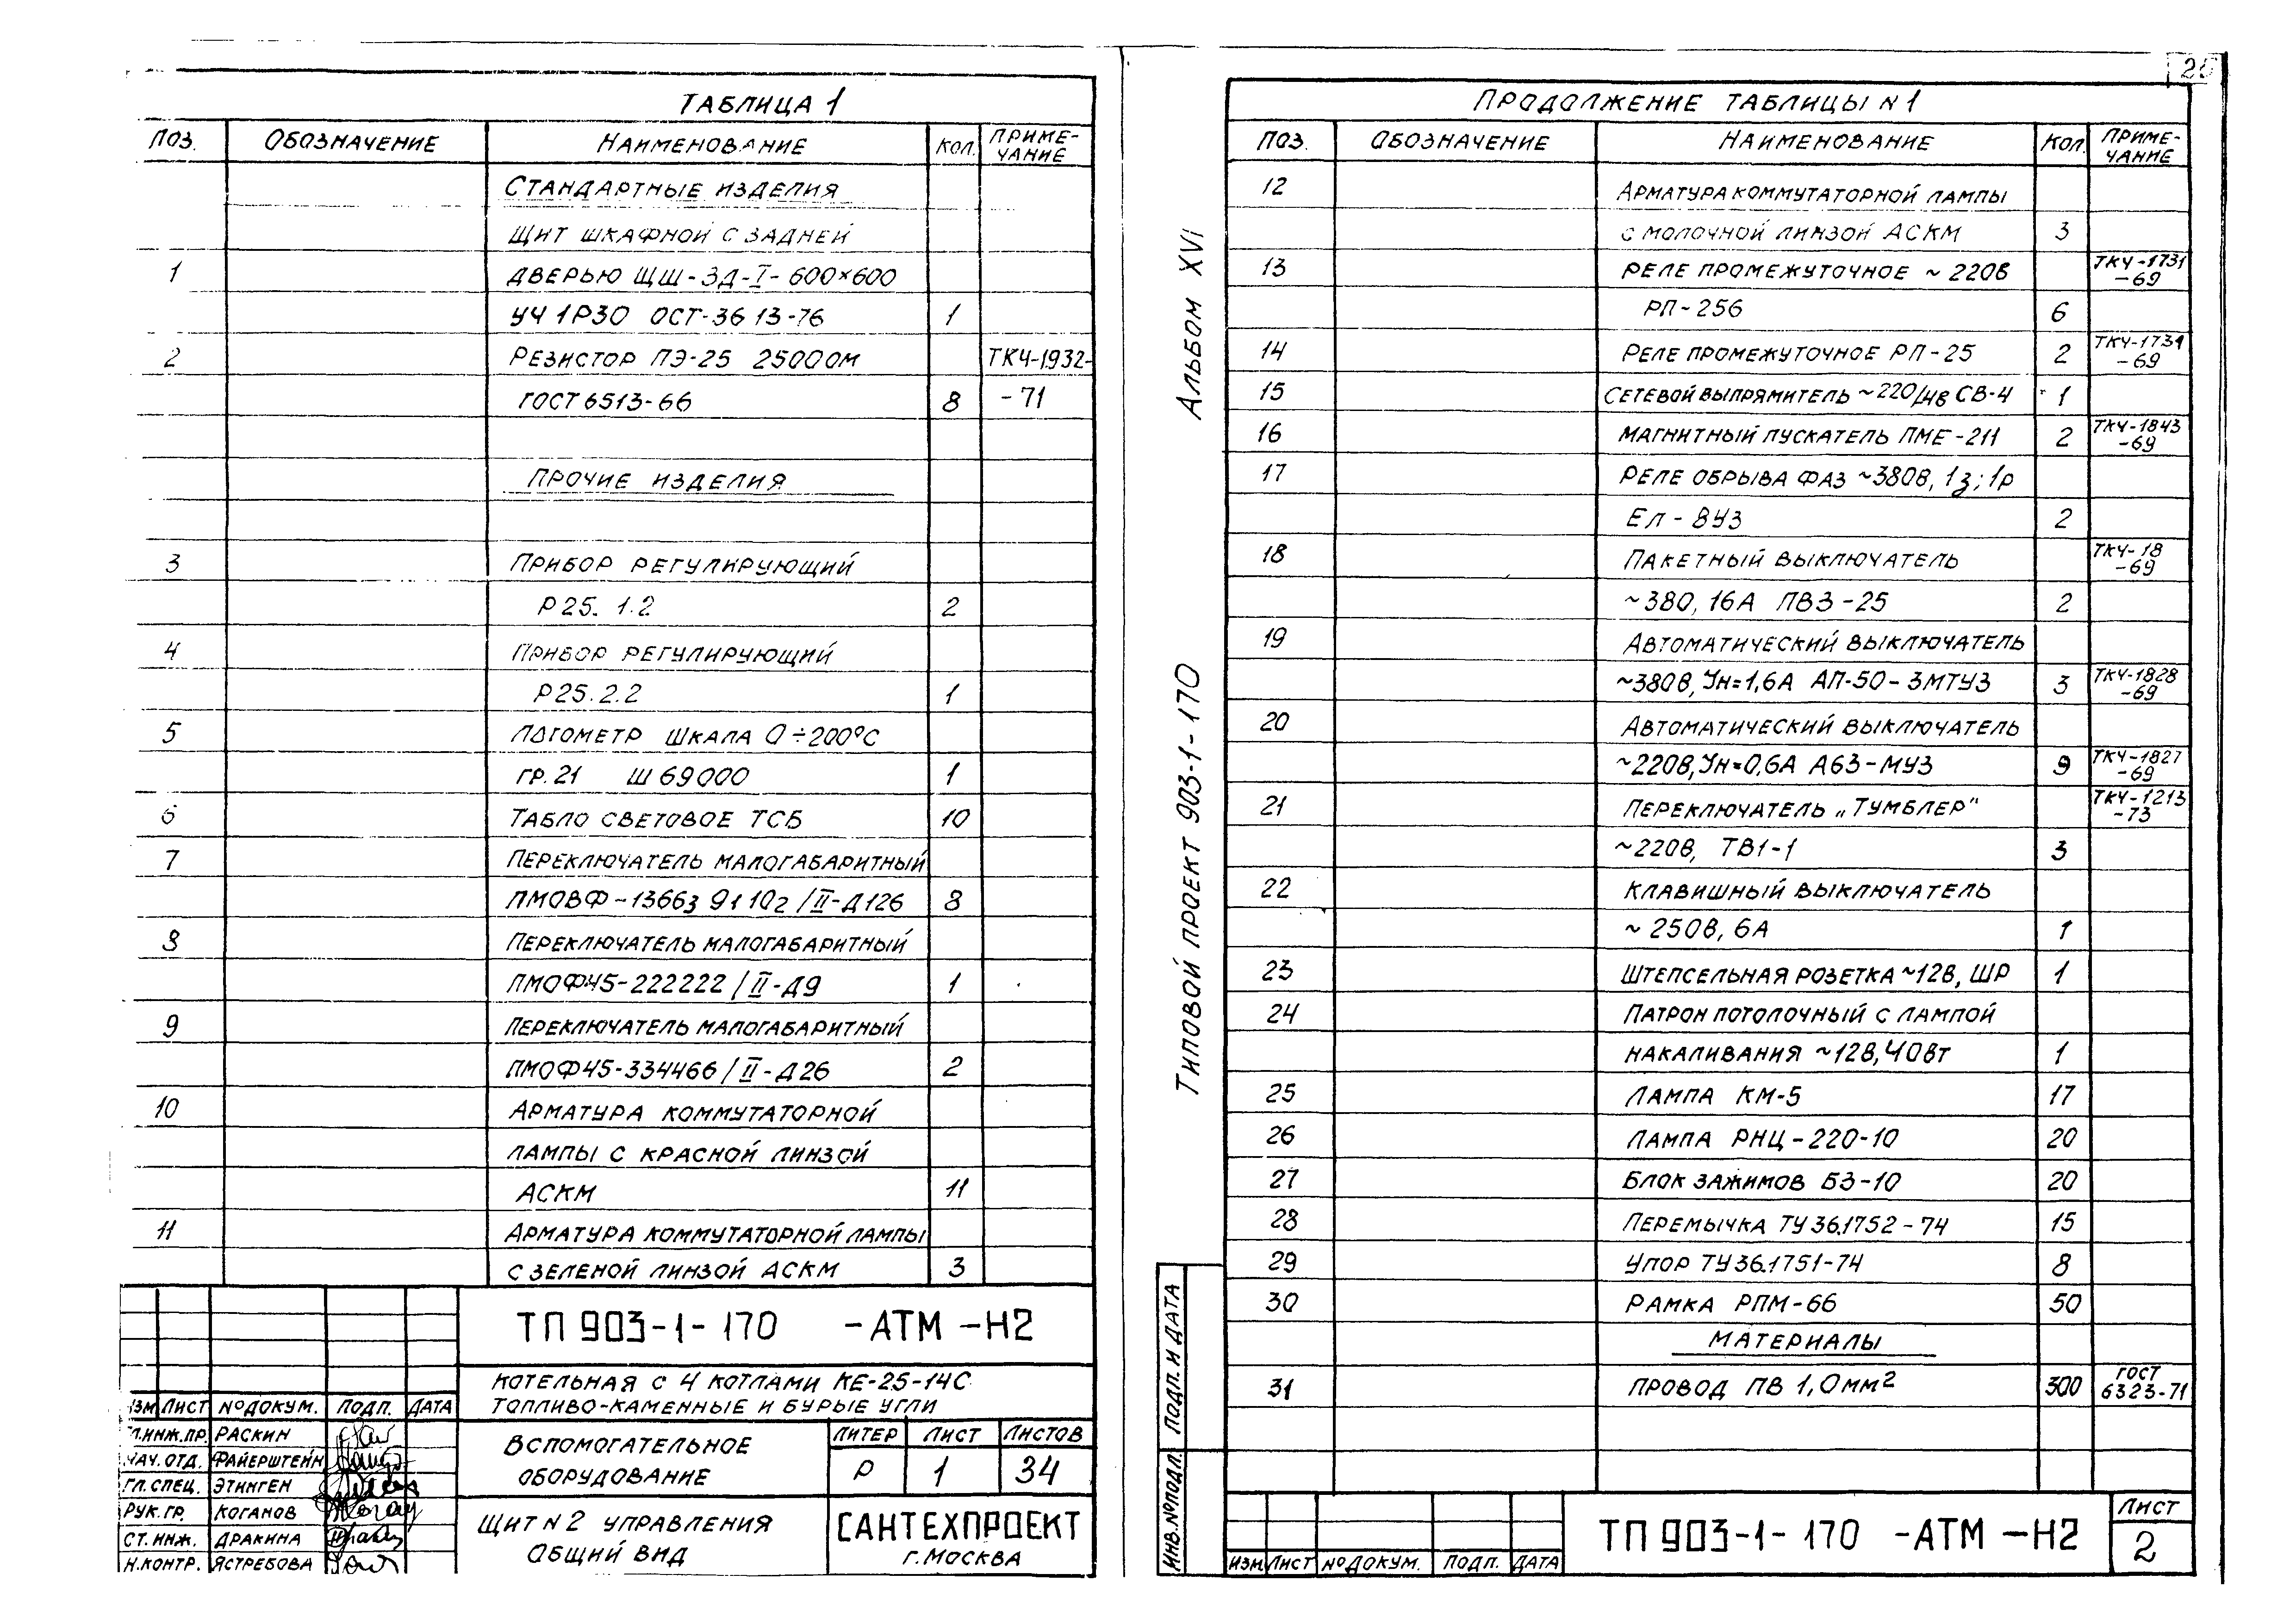 ТАБЛИЦА 1
ПОЗ. ОБОЗНАЧЕНИЕ НАИМЕНОВАНИЕ КОЛ. ПРИМЕ-
ЧАНИЕ
СТАНДАРТНЫЕ ИЗДЕЛИЯ
ЩИТ ШКАФНОЙ С ЗАДНЕЙ
1 ДВЕРЬЮ ЩШ-ЗД-I-600×600
УЧ 1Р30 ОСТ-36 13-76 1
2 РЕЗИСТОР ПЭ-25 2500 ОМ ТКЧ-1932-
ГОСТ 6513-66 8 -71
ПРОЧИЕ ИЗДЕЛИЯ
3 ПРИБОР РЕГУЛИРУЮЩИЙ
Р25. 1.2 2
4 ПРИБОР РЕГУЛИРУЮЩИЙ
Р25.2.2 1
5 ЛОГОМЕТР ШКАЛА 0÷200°С
ГР.21 Ш 69000 1
6 ТАБЛО СВЕТОВОЕ ТСБ 10
7 ПЕРЕКЛЮЧАТЕЛЬ МАЛОГАБАРИТНЫЙ
ПМОВФ-1366з 91 10г/II-Д126 8
8 ПЕРЕКЛЮЧАТЕЛЬ МАЛОГАБАРИТНЫЙ
ПМОФ45-222222/II-Д9 1
9 ПЕРЕКЛЮЧАТЕЛЬ МАЛОГАБАРИТНЫЙ
ПМОФ45-334466/II-Д26 2
10 АРМАТУРА КОММУТАТОРНОЙ
ЛАМПЫ С КРАСНОЙ ЛИНЗОЙ
АСКМ 11
11 АРМАТУРА КОММУТАТОРНОЙ ЛАМПЫ
С ЗЕЛЕНОЙ ЛИНЗОЙ АСКМ 3
ТП 903-1-170 -АТМ -Н2
КОТЕЛЬНАЯ С 4 КОТЛАМИ КЕ-25-14С
ТОПЛИВО-КАМЕННЫЕ И БУРЫЕ УГЛИ
ИЗМ ЛИСТ №ДОКУМ. ПОДП. ДАТА
ГЛ.ИНЖ.ПР. РАСКИН
НАЧ.ОТД. ФАЙЕРШТЕЙН
ГЛ.СПЕЦ. ЭТИНГЕН
РУК.ГР. КОГАНОВ
СТ.ИНЖ. ДРАКИНА
Н.КОНТР. ЯСТРЕБОВА
ВСПОМОГАТЕЛЬНОЕ
ОБОРУДОВАНИЕ
ЛИТЕР ЛИСТ ЛИСТОВ
Р 1 34
ЩИТ N 2 УПРАВЛЕНИЯ
ОБЩИЙ ВИД
САНТЕХПРОЕКТ
Г. МОСКВА
АЛЬБОМ XVI
ТИПОВОЙ ПРОЕКТ 903-1-170
ПОДП. И ДАТА
ИНВ.№ПОДЛ.
ПРОДОЛЖЕНИЕ ТАБЛИЦЫ N 1
ПОЗ. ОБОЗНАЧЕНИЕ НАИМЕНОВАНИЕ КОЛ. ПРИМЕ-
ЧАНИЕ
12 АРМАТУРА КОММУТАТОРНОЙ ЛАМПЫ
С МОЛОЧНОЙ ЛИНЗОЙ АСКМ 3
13 РЕЛЕ ПРОМЕЖУТОЧНОЕ ~ 220В ТКЧ-1731
-69
РП-256 6
14 РЕЛЕ ПРОМЕЖУТОЧНОЕ РП-25 2 ТКЧ-1731
-69
15 СЕТЕВОЙ ВЫПРЯМИТЕЛЬ ~220/48 СВ-4 1
16 МАГНИТНЫЙ ПУСКАТЕЛЬ ПМЕ-211 2 ТКЧ-1843
-69
17 РЕЛЕ ОБРЫВА ФАЗ ~380В, 1з; 1р
ЕЛ-8У3 2
18 ПАКЕТНЫЙ ВЫКЛЮЧАТЕЛЬ ТКЧ-18
-69
~380, 16А ПВ3-25 2
19 АВТОМАТИЧЕСКИЙ ВЫКЛЮЧАТЕЛЬ
~380В, Jн=1,6А АП-50-3МТУ3 3 ТКЧ-1828
-69
20 АВТОМАТИЧЕСКИЙ ВЫКЛЮЧАТЕЛЬ
~220В, Jн=0,6А А63-МУ3 9 ТКЧ-1827
-69
21 ПЕРЕКЛЮЧАТЕЛЬ „ТУМБЛЕР" ТКЧ-1213
-73
~220В, ТВ1-1 3
22 КЛАВИШНЫЙ ВЫКЛЮЧАТЕЛЬ
~ 250В, 6А 1
23 ШТЕПСЕЛЬНАЯ РОЗЕТКА ~12В, ШР 1
24 ПАТРОН ПОТОЛОЧНЫЙ С ЛАМПОЙ
НАКАЛИВАНИЯ ~12В, 40ВТ 1
25 ЛАМПА КМ-5 17
26 ЛАМПА РНЦ-220-10 20
27 БЛОК ЗАЖИМОВ БЗ-10 20
28 ПЕРЕМЫЧКА ТУ 36.1752-74 15
29 УПОР ТУ 36.1751-74 8
30 РАМКА РПМ-66 50
МАТЕРИАЛЫ
31 ПРОВОД ПВ 1,0мм² 300 ГОСТ
6323-71
ИЗМ ЛИСТ №ДОКУМ. ПОДП. ДАТА
ТП 903-1-170 -АТМ -Н2
ЛИСТ
2